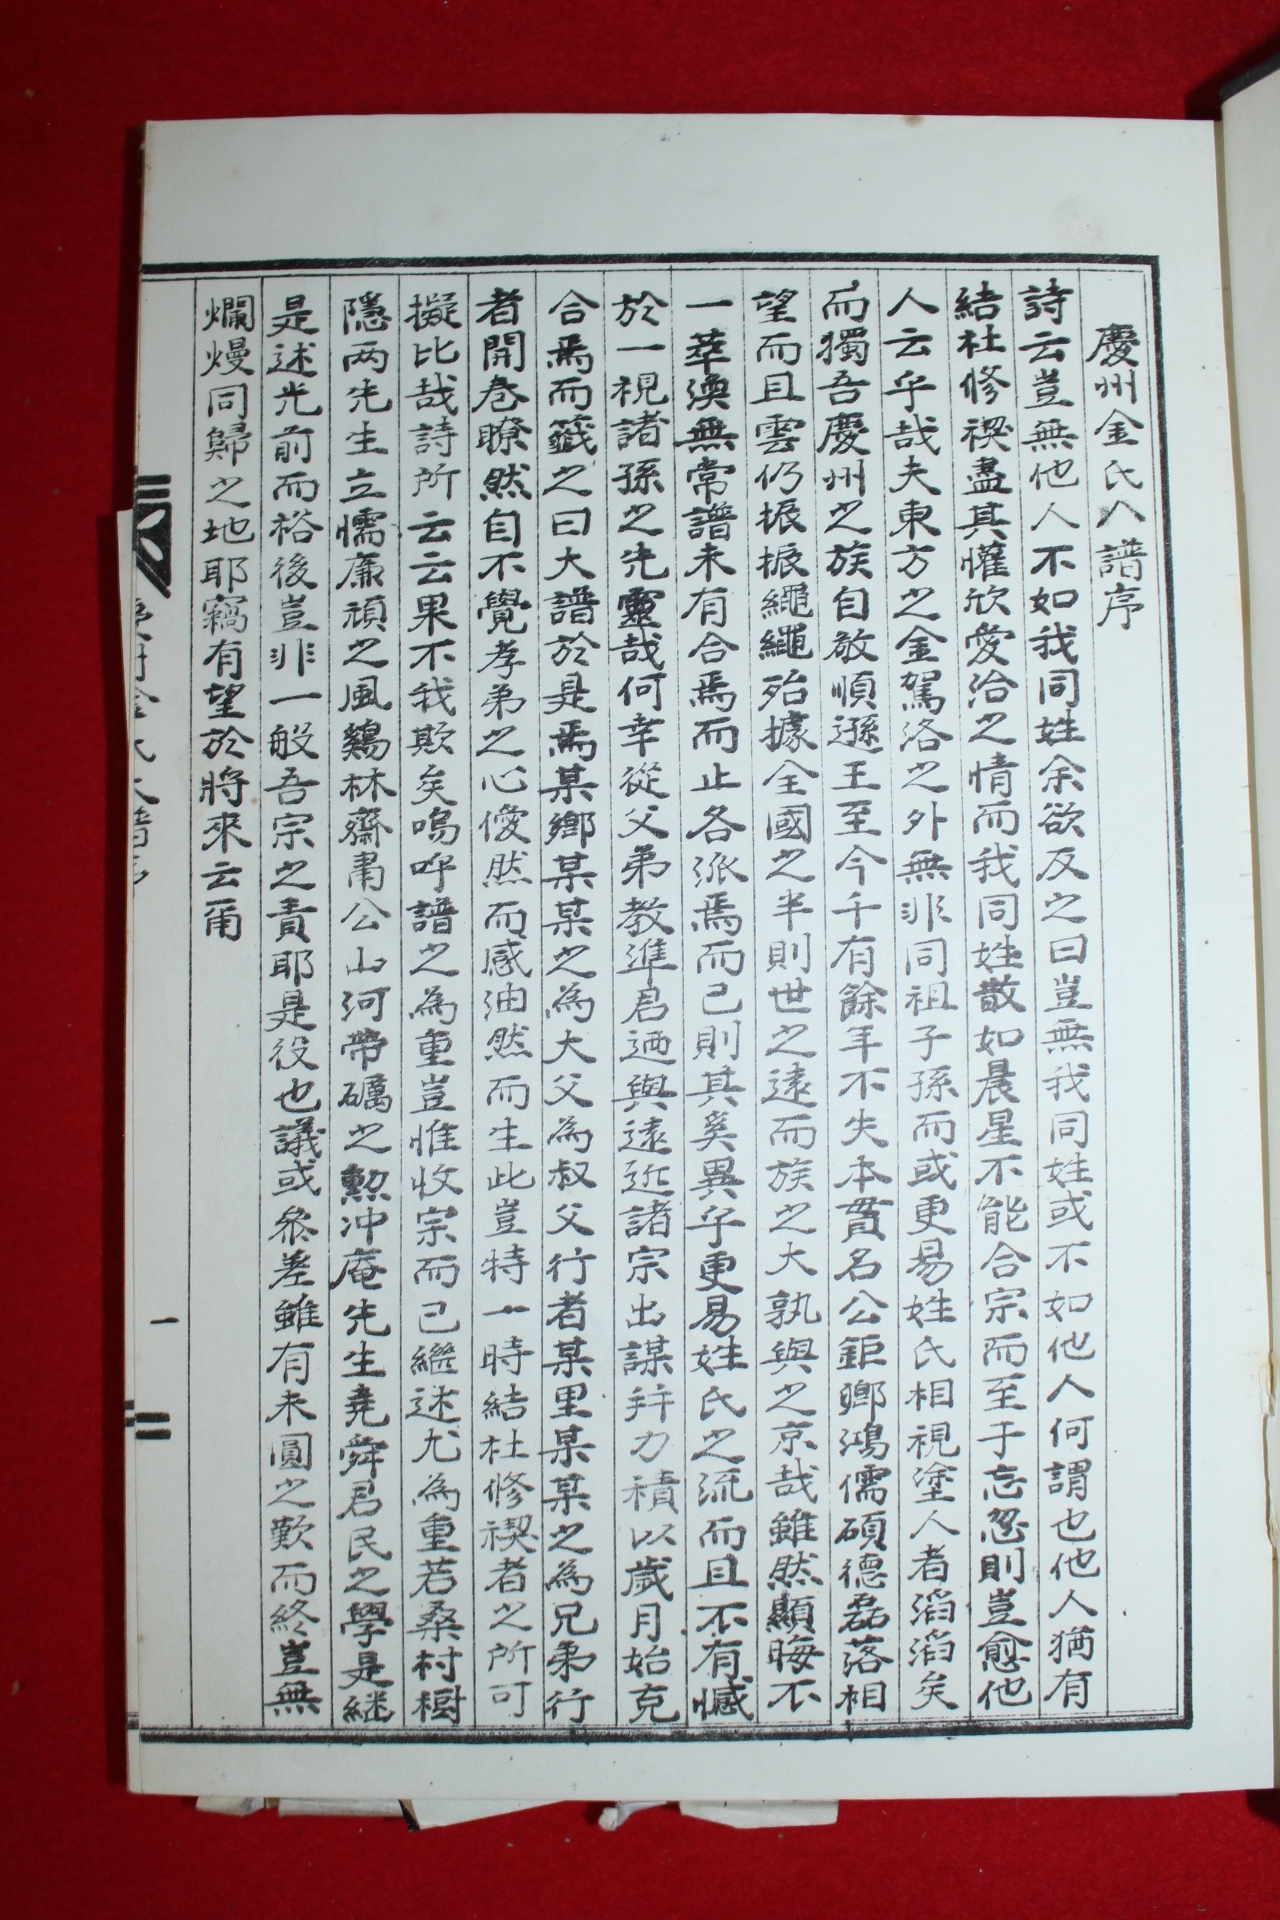 慶州金氏大譜序
詩云豈無他人不如我同姓余欲反之曰豈無我同姓或不如他人何謂也他人猶有
結社修禊盡其懽欣愛洽之情而我同姓散如晨星不能合宗而至于忘忽則豈愈他
人云乎哉夫東方之金駕洛之外無非同祖子孫而或更易姓氏相視塗人者滔滔矣
而獨吾慶州之族自敬順遜王至今千有餘年不失本貫名公鉅鄕鴻儒碩德磊落相
望而且雲仍振振繩繩殆據全國之半則世之遠而族之大孰與之京哉雖然顯晦不
一萃渙無常譜未有合焉而止各派焉而已則其奚異乎更易姓氏之流而且不有憾
於一視諸孫之先靈哉何幸從父弟教進君迺與遠近諸宗出謀幷力積以歲月始克
合焉而籤之曰大譜於是焉某鄕某某之為大父為叔父行者某里某某之為兄弟行
者開卷瞭然自不覺孝弟之心僾然而感油然而生此豈特一時結社修禊者之所可
擬比哉詩所云云果不我欺矣嗚呼譜之為重豈惟收宗而已繼述尤為重若桑村樹
隱两先生立懦廉頑之風鷄林齋肅公山河帶礪之勲冲庵先生堯舜君民之學是継
是述光前而裕後豈非一般吾宗之責耶是役也議或叅差雖有未圓之歎而終豈無
爛熳同歸之地耶竊有望於將來云爾
一